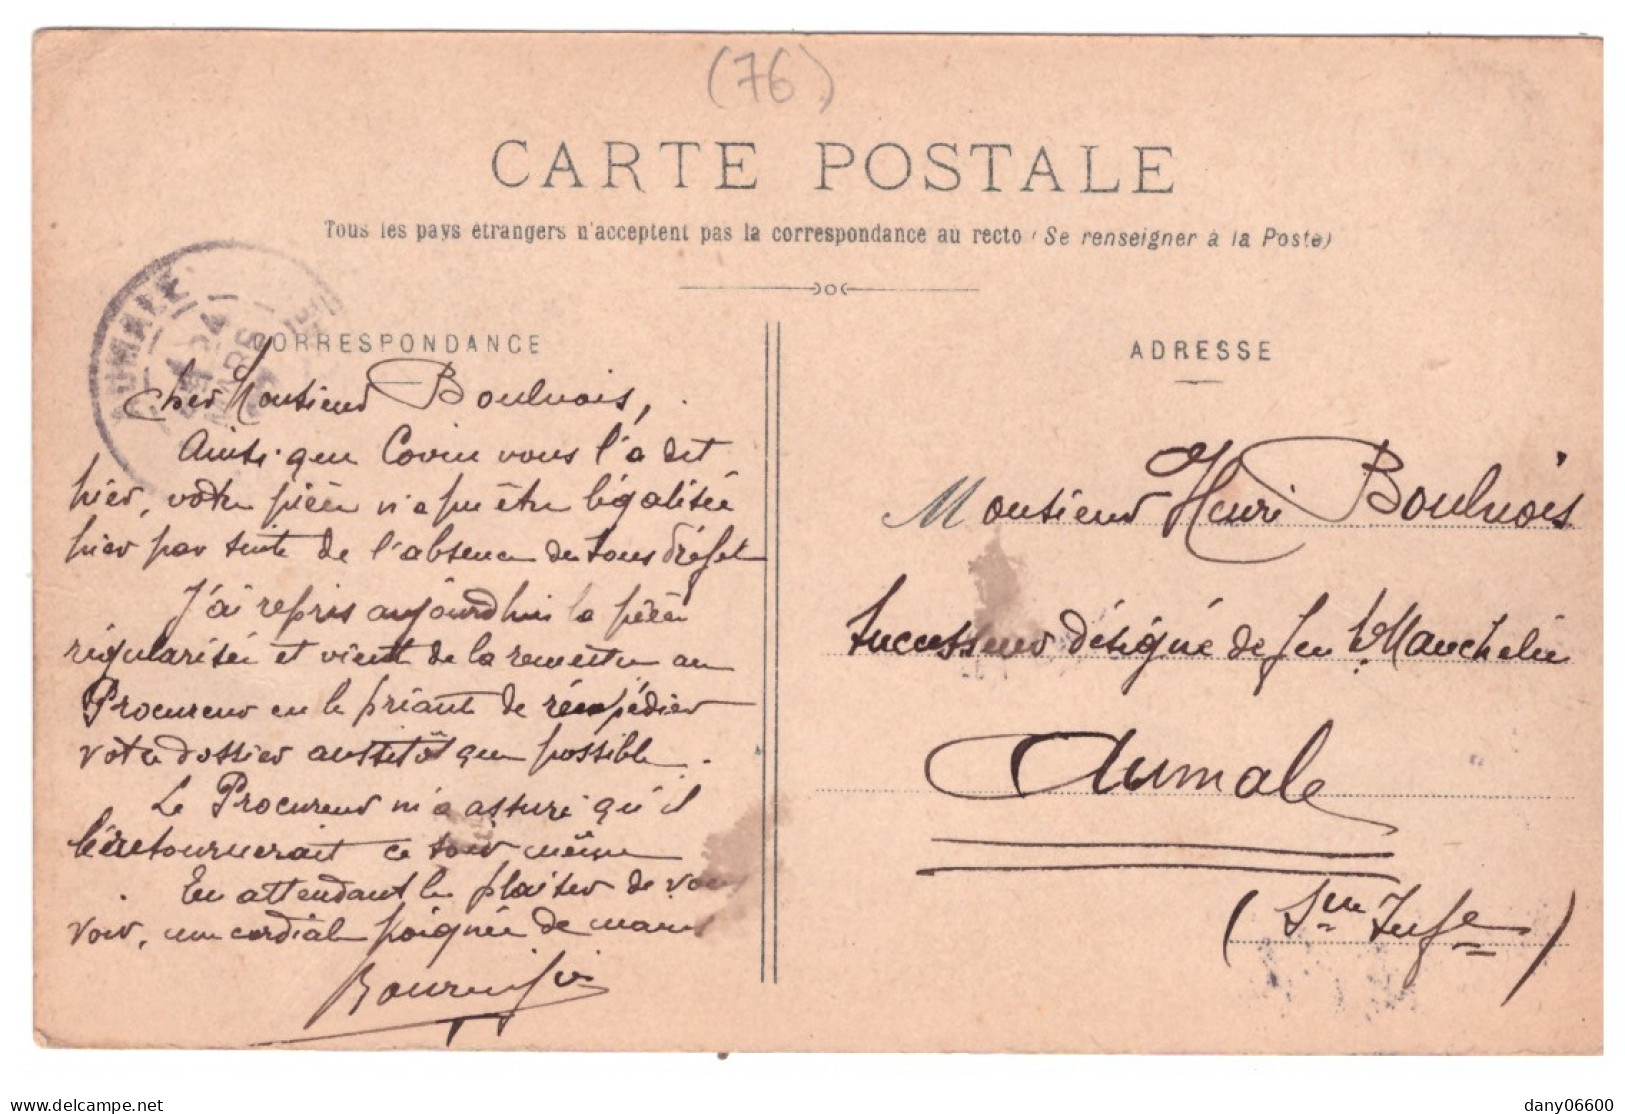 (76)
CARTE POSTALE
Tous les pays étrangers n'acceptent pas la correspondance au recto (Se renseigner à la Poste)
AUMALE
MARS
CORRESPONDANCE
Cher Monsieur Boulnois,
Ainsi que vous l'a dit
hier, votre pièce n'a pu être légalisée
hier par suite de l'absence du Sous Préfet
J'ai repris aujourd'hui la pièce
régularisée et vient de la remettre au
Procureur en le priant de réexpédier
votre dossier aussitôt que possible.
Le Procureur m'a assuré qu'il
le retournerait ce soir même
En attendant le plaisir de vous
voir, une cordiale poignée de main
ADRESSE
Monsieur Henri Boulnois
Successeur désigné de feu Mr Manchelin
Aumale
(Sne Infre)
delcampe.net
dany06600